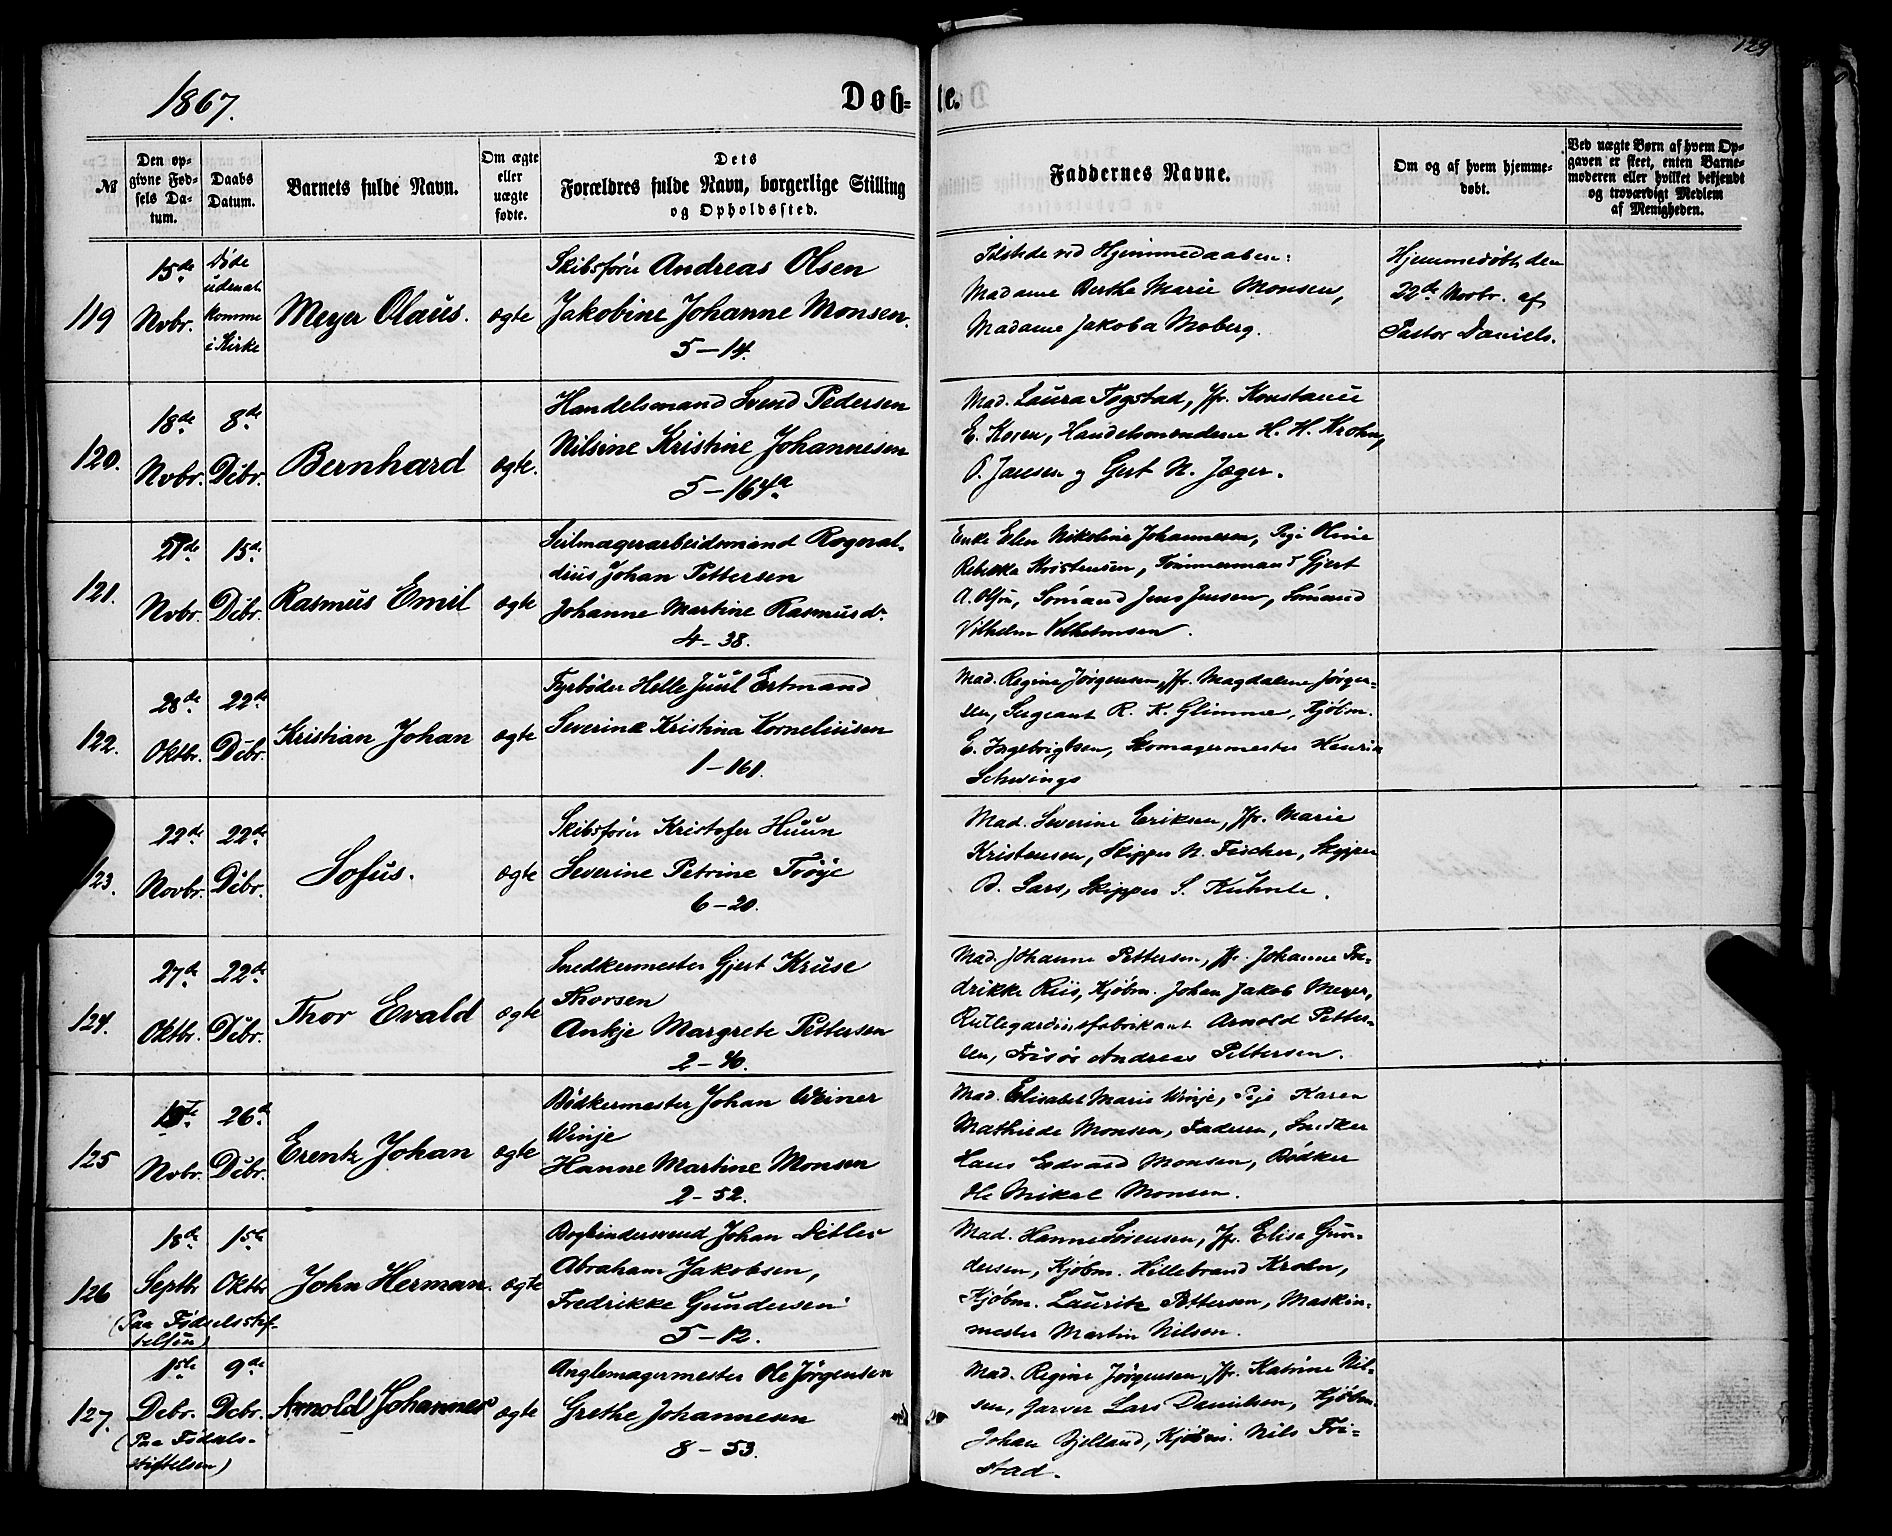 129
1867.
Døb-
te.
№
Den op-
givne Fød-
sels Da-
tum.
Daabs
Datum.
Barnets fulde Navn.
Om ægte
eller
uægte
fødte.
Dets
Forældres fulde Navn, borgerlige Stilling
og Opholdssted.
Faddernes Navne.
Om og af hvem hjemme-
døbt.
Ved uægte Børn af hvem Op-
gaven er skeet, enten Barne-
moderen eller hvilket bekjendt
og troværdigt Medlem
af Menigheden.
119
15de
Novbr.
Døde
uden at
komme
i Kirke
Meyer Olaus.
ægte
Skibsfører Andreas Olsen
Jakobine Johanne Monsen.
5-14.
Tilstede ved Hjemmedaaben:
Madame Berthe Marie Monsen,
Madame Jakoba Moberg.
Hjemmedøbt den
22de Novbr. af
Pastor Daniels.
120.
18de
Novbr.
8de
Dcbr.
Bernhard
ægte.
Handelsmand Svend Pedersen
Nilsine Kristine Johannesen
5-164a
Mad. Laura Fogstad, Jfr. Konstance
E. Koren, Handelsmændene H. H. Krohn,
O. Jansen og Gert N. Jæger.
121.
21de
Novbr.
15de
Dcbr.
Rasmus Emil
ægte
Seilmagerarbeidsmand Rognval-
dius Johan Pettersen
Johanne Martine Rasmusdr.
4-38.
Enke Elen Nikoline Johannesen, Pige Oline
Rebekka Kristensen, Tømmermand Gjert
A. Olsen, Sømand Jens Jensen, Sømand
Vilhelm Vilhelmsen.
122.
28de
Oktbr.
22de
Dcbr.
Kristian Johan
ægte
Fyrbøder Helle Juul Ertmand
Severine Kristina Korneliusen
1-161.
Mad. Regine Jørgensen, Jfr. Magdalene Jørgen-
sen, Sergeant R. K. Glimme, Kjøbm.
E. Ingebrigtsen, Skomagermester Henrik
Schwings
123.
22de
Novbr.
22de
Dcbr.
Sofus.
ægte
Skibsfører Kristofer Huun
Severine Petrine Trøje
6-20.
Mad. Severine Eriksen, Jfr. Marie
Kristensen, Skipper N. Fischer, Skipper
B. Lars, Skipper S. Kuhnle.
124.
27de
Oktbr.
22de
Dcbr.
Thor Evald
ægte
Snedkermester Gjert Kruse
Thorsen
Ankje Margrete Pettersen
2-40.
Mad. Johanne Pettersen, Jfr. Johanne Fre-
drikke Riis, Kjøbm. Johan Jakob Meyer,
Rullegardinsfabrikant Arnold Petter-
sen, Frisør Andreas Pettersen.
125
Novbr.
26de
Dcbr.
Erentz Johan
ægte
Bødkermester Johan Weiner
Winje
Hanne Martine Monsen
2-52.
Mad. Elisabet Marie Winje, Pige Karen
Mathilde Monsen, Faderen, Snedker
Hans Edvard Monsen, Bødker
Ole Mikal Monsen.
126
18de
Septbr
(Paa Fødselsstif-
telsen)
1ste
Oktbr
John Herman.
ægte
Bogbindersvend Johan Ditlev
Abraham Jakobsen,
Fredrikke Gundersen
5-12.
Mad. Hanne Sørensen, Jfr. Elisa Gun-
dersen, Kjøbm. Hillebrand Krohn,
Kjøbm. Lauritz Pettersen, Maskin-
mester Martin Nilsen.
127.
1ste
Dcbr.
(Paa Fødsels-
stiftelsen)
9de
Dcbr.
Arnold Johannes
ægte
Anglemagermester Ole Jørgensen
Grethe Johannesen
8-53.
Mad. Regine Jørgensen, Jfr. Katrine Nil-
sen, Garver Lars Danielsen, Kjøbm.
Johan Bjelland, Kjøbm. Nils Fri-
stad.